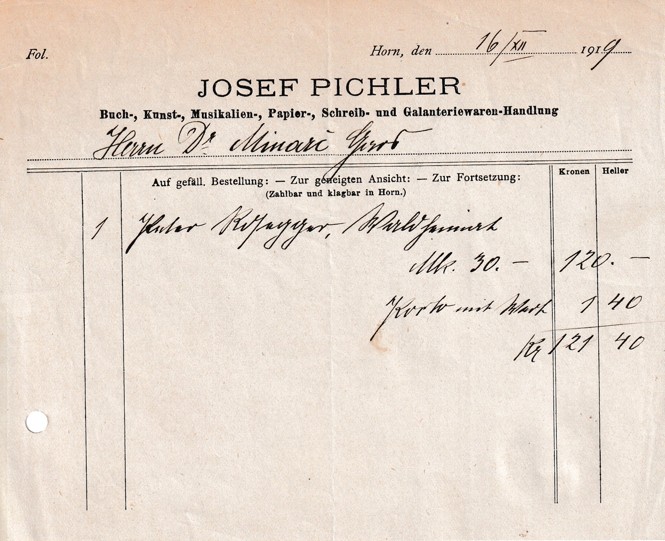 Fol.
Horn, den 16/XII 1919
JOSEF PICHLER
Buch-, Kunst-, Musikalien-, Papier-, Schreib- und Galanteriewaren-Handlung
Herrn Dr Minarč Gars
Auf gefäll. Bestellung: — Zur geneigten Ansicht: — Zur Fortsetzung:
(Zahlbar und klagbar in Horn.)
Kronen Heller
1 Peter Rosegger, Waldheimat
Mk. 30.— 120.—
Porto mit 1 40
Kr 121 40